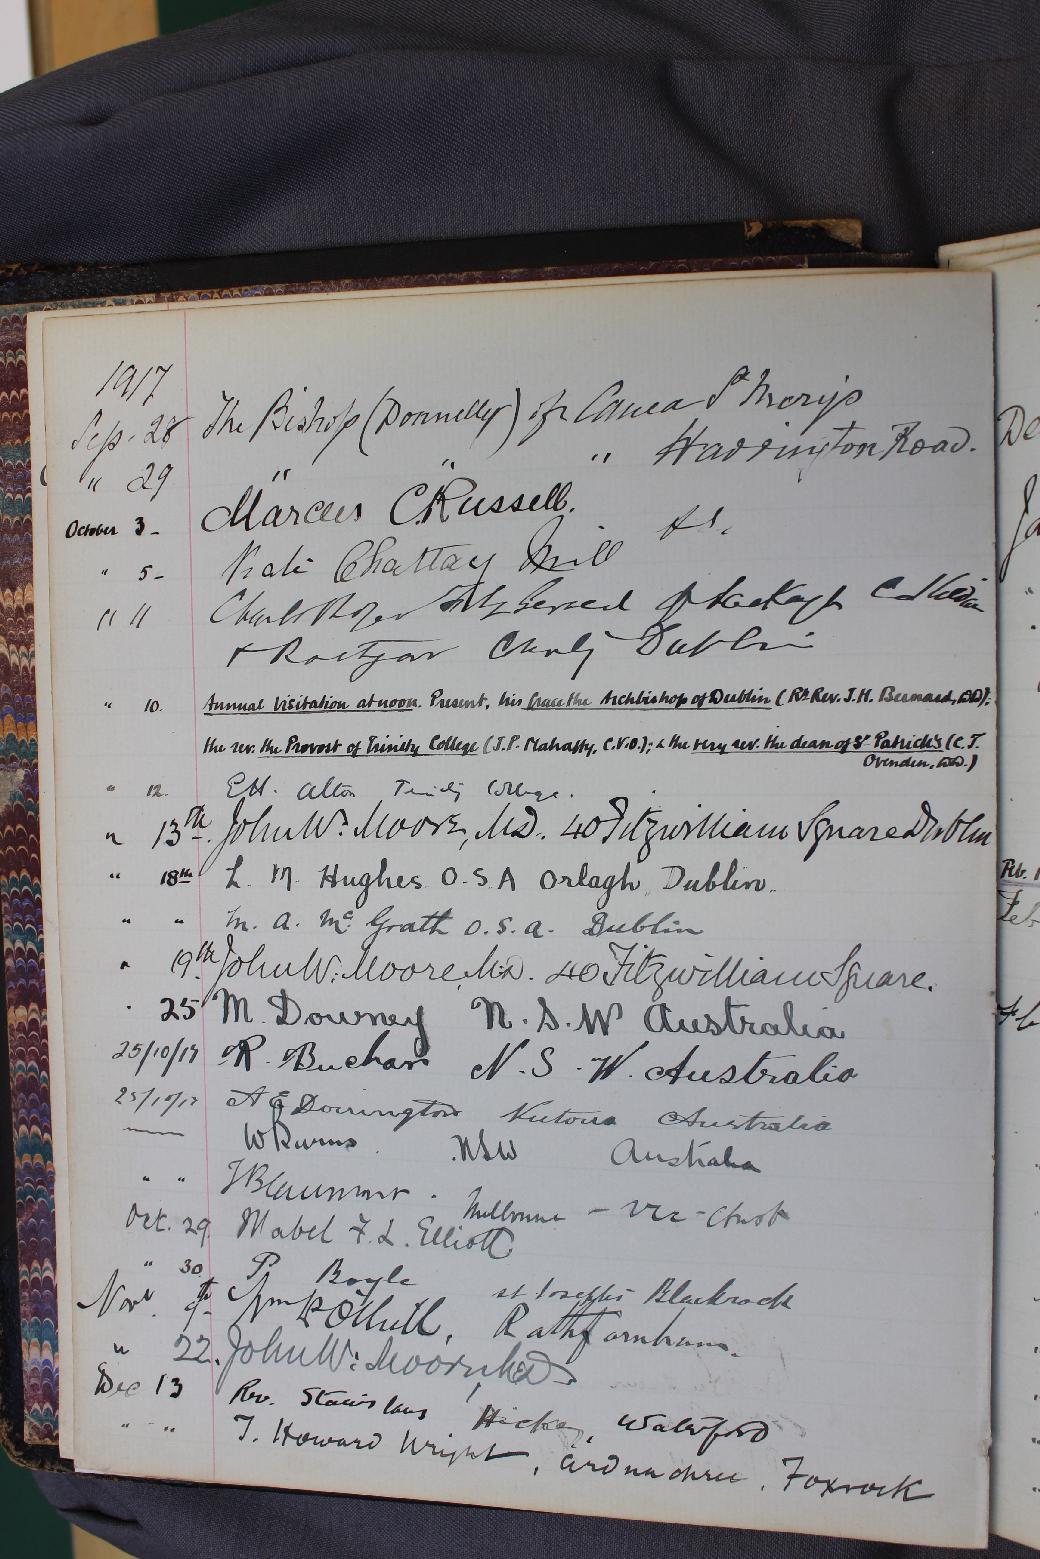 1917
Sep. 28 The Bishop (Donnelly) of Canea St Mary's
" 29 " " " Haddington Road.
October 3 - Marcus C. Russell.
" 5 - Chattay
" 11 Charles Roger
& County Dublin
" 10. Annual Visitation at noon. Present, his grace the Archbishop of Dublin (Rt. Rev. J.H. Bernard, D.D.);
the rev. the Provost of Trinity College (J.P. Mahaffy, C.V.O.); & the very rev. the dean of St Patrick's (C.T.
Ovenden, D.D.)
" 12. E.H. Alton Trinity College.
" 13th. John W. Moore, M.D. 40 Fitzwilliam Square Dublin
" 18th L. M. Hughes O.S.A Orlagh Dublin.
" " M. A. McGrath O.S.A. Dublin
" 19th John W. Moore, M.D. 40 Fitzwilliam Square.
" 25 M. Downey N.S.W Australia
25/10/17 R. Buchan N.S.W. Australia
25/10/17 Dorrington Victoria Australia
W Burns NSW Australia
" " J Beaumont. Melbourne - Vic - Aust
Oct. 29 Mabel F. L. Elliott
" 30 P Boyle St Joseph's Blackrock
Nov. 9th Rathfarnham.
" 22. John W. Moore, M.D.
Dec 13 Rev. Stanislaus Hickey, Waterford
" " T. Howard Wright, Foxrock
De
Ja
Feb. 1
Feb